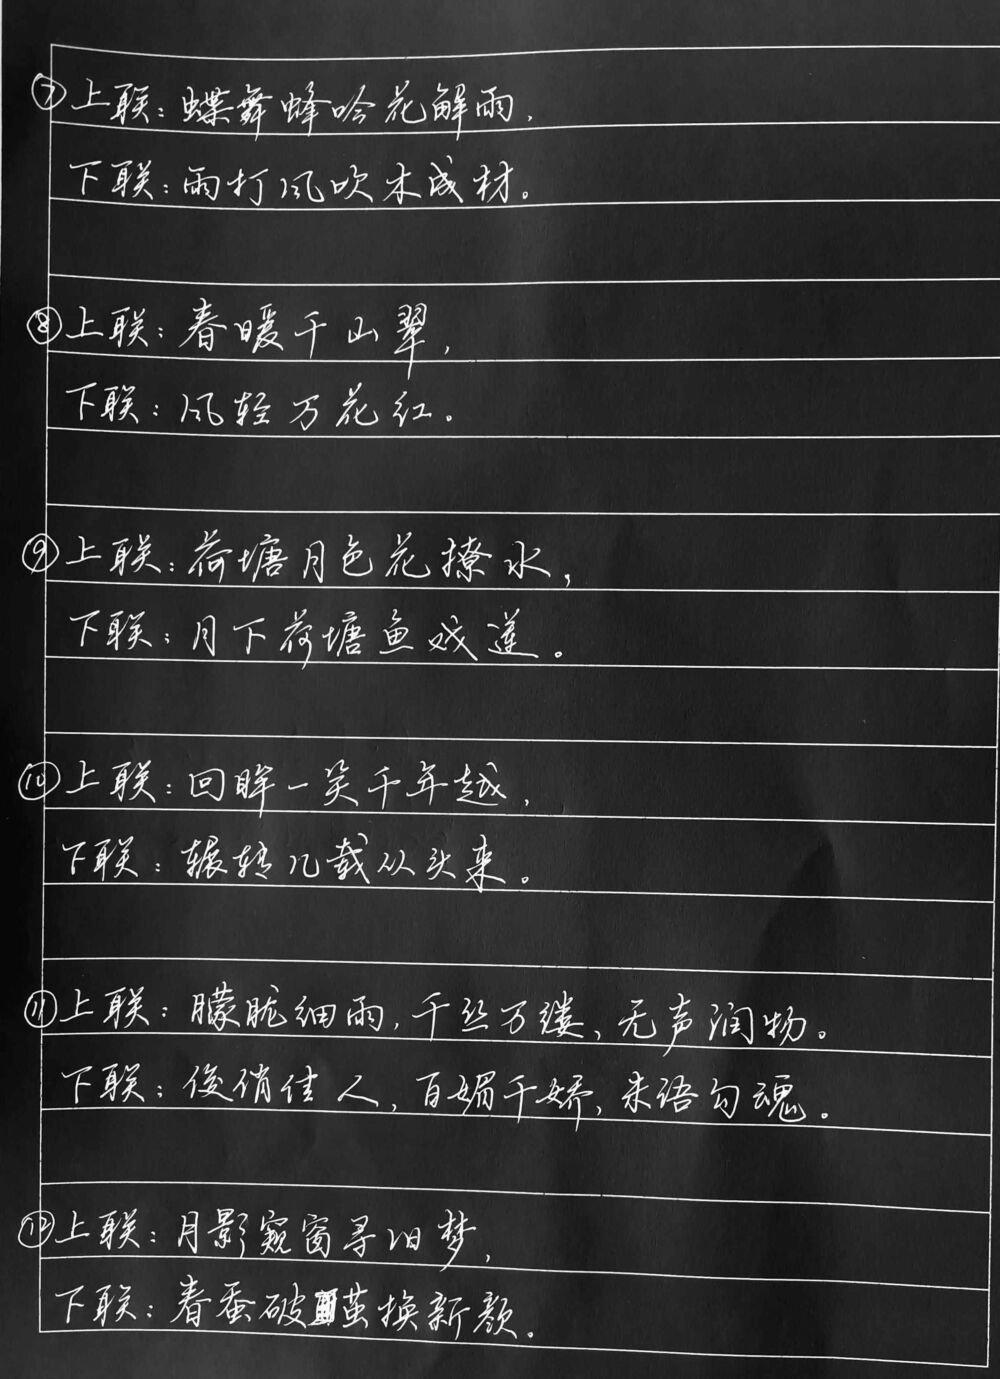 ⑦上联：蝶舞蜂吟花解雨，
下联：雨打风吹木成材。
⑧上联：春暖千山翠，
下联：风轻万花红。
⑨上联：荷塘月色花撩水，
下联：月下荷塘鱼戏莲。
⑩上联：回眸一笑千年越，
下联：辗转几载从头来。
⑪上联：朦胧细雨，千丝万缕，无声润物。
下联：俊俏佳人，百媚千娇，未语勾魂。
⑫上联：月影窥窗寻旧梦，
下联：春蚕破茧换新颜。